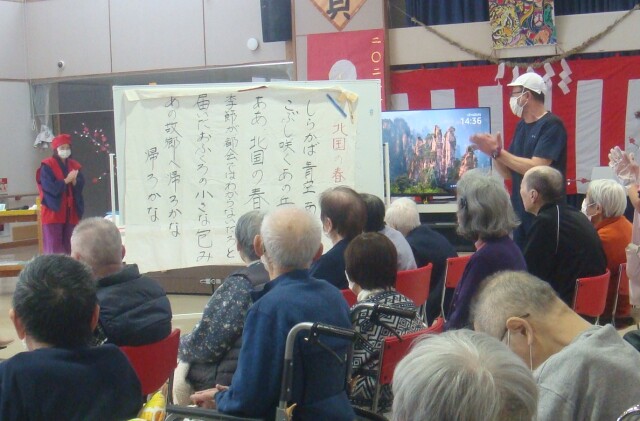 北国の春
しらかば 青空
こぶし咲くあの
ああ 北国の春
季節が都会ではわからないだろと
届いたおふくろの小さな包み
あの故郷へ帰ろかな
帰ろかな
14:36